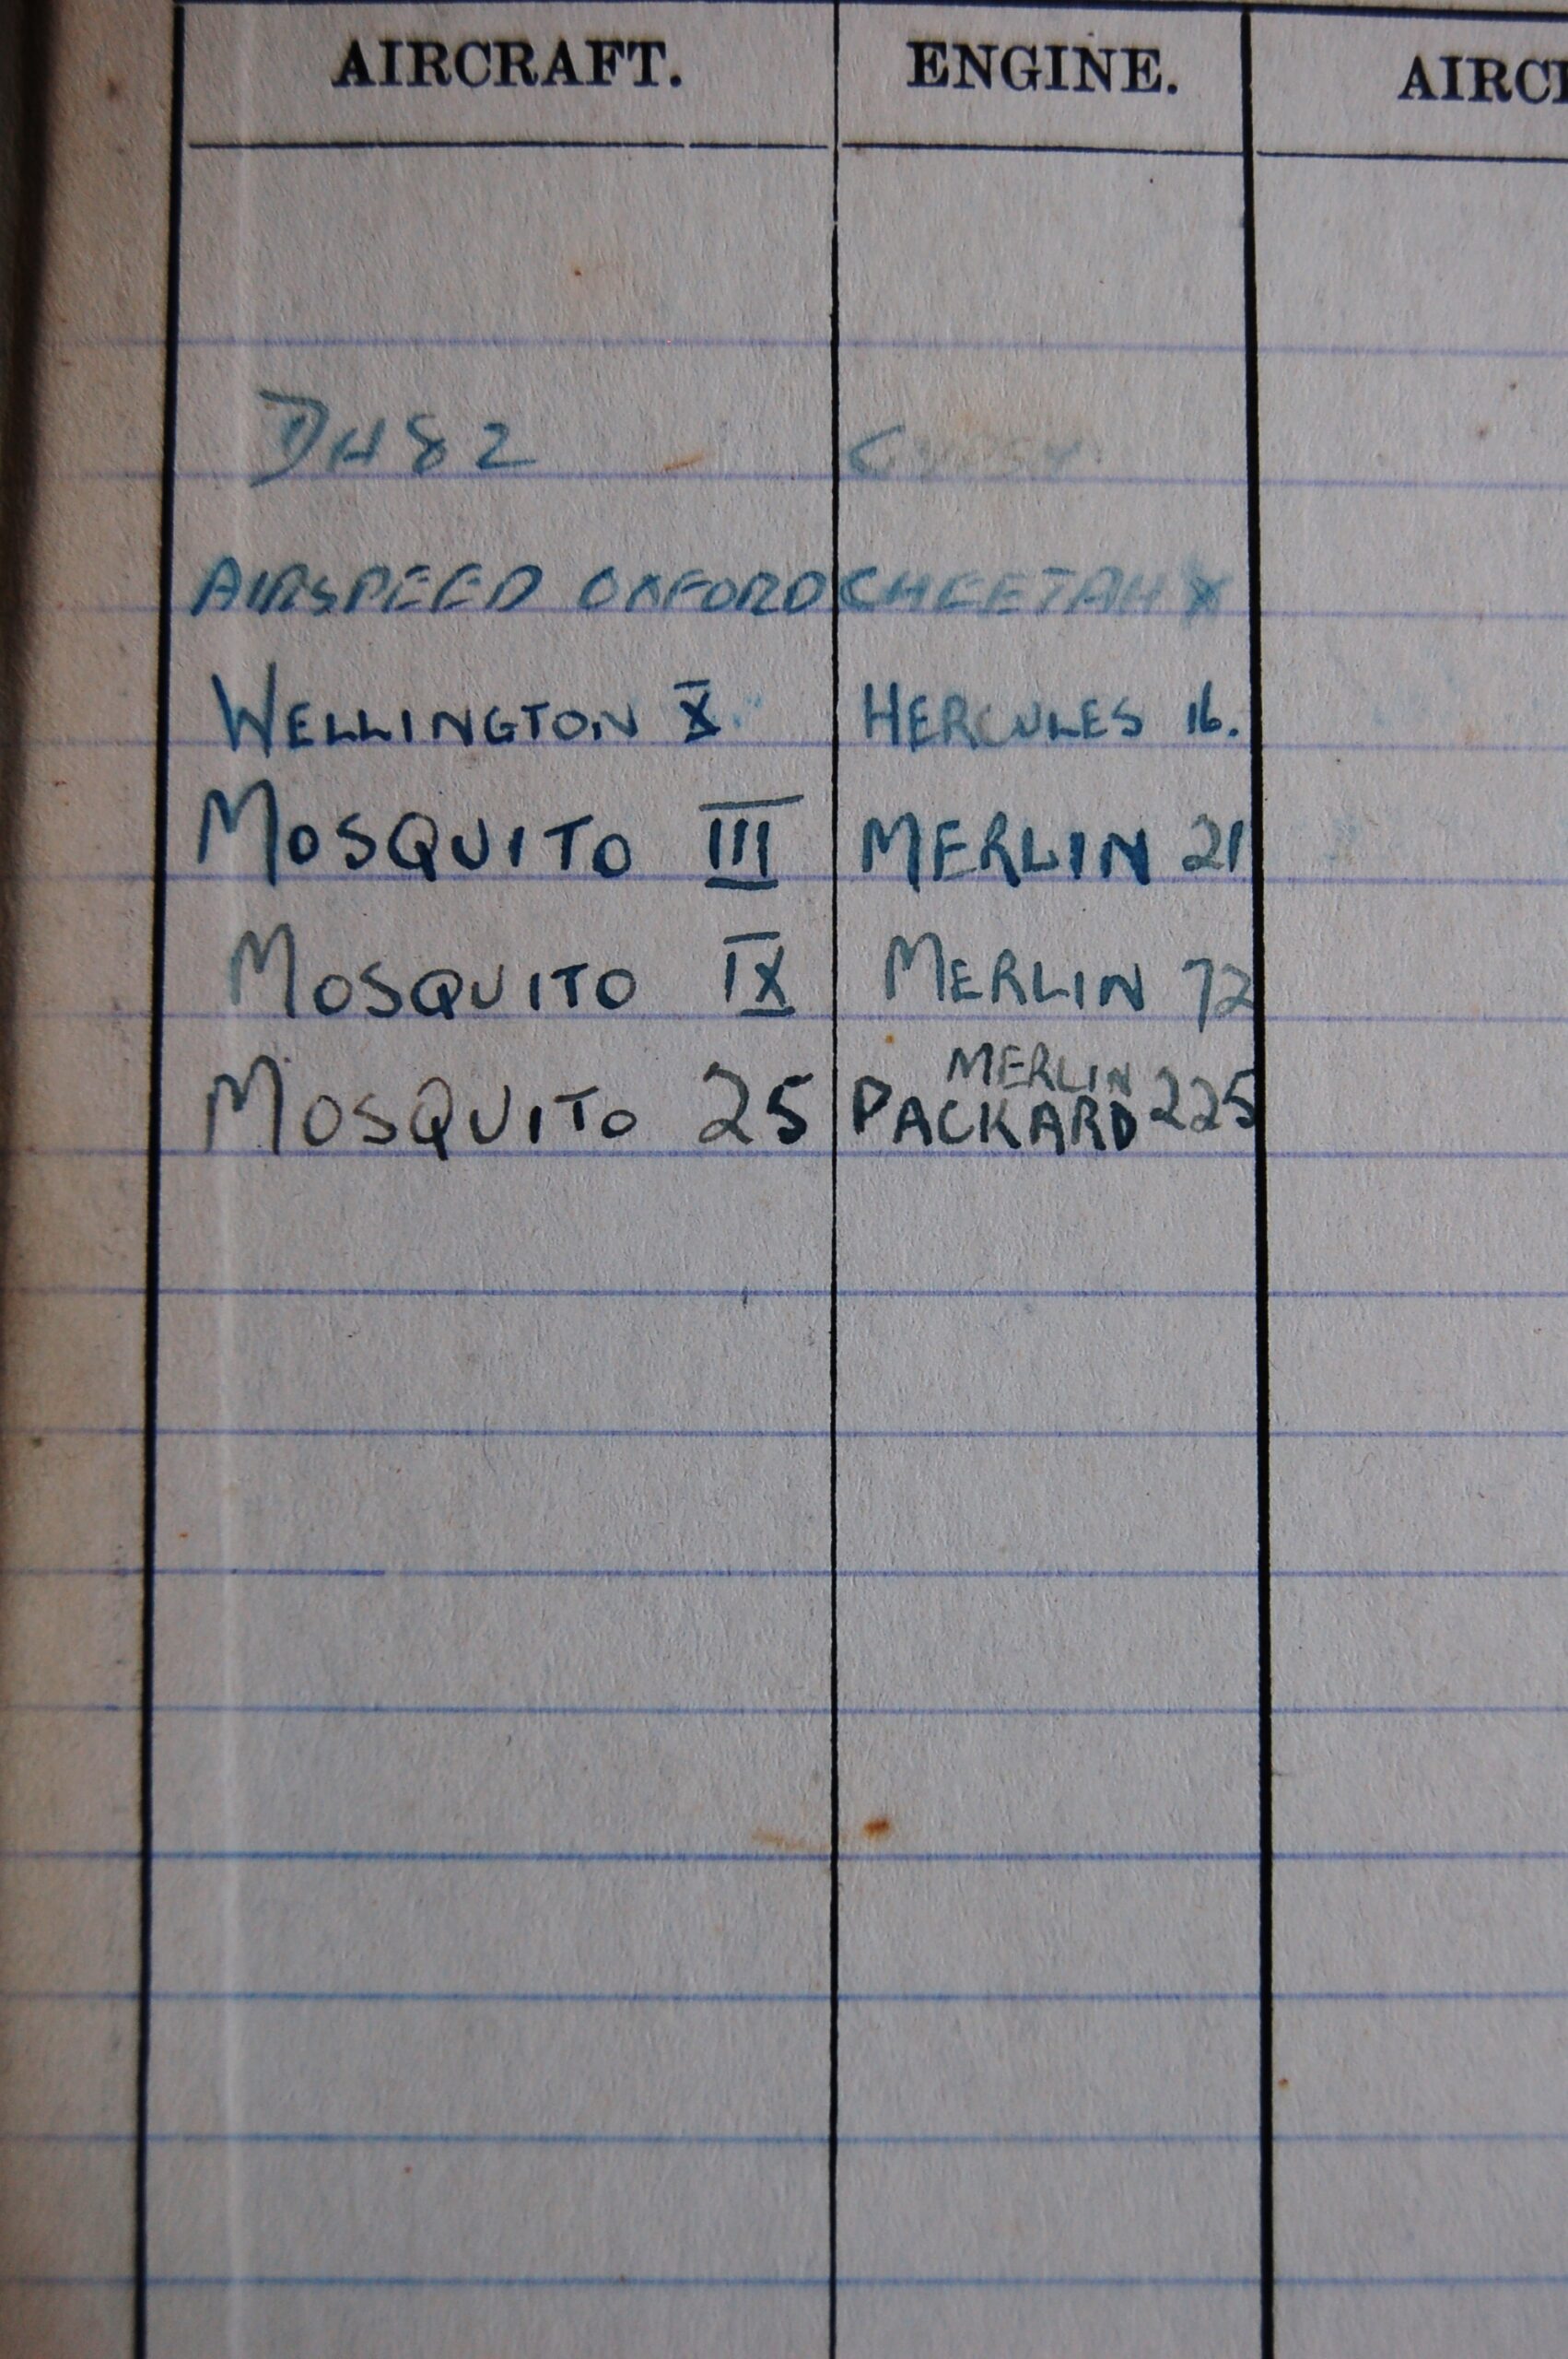 AIRCRAFT. ENGINE. AIRC
DH82 GYPSY
AIRSPEED OXFORD CHEETAH X
WELLINGTON X HERCULES 16.
MOSQUITO III MERLIN 21
MOSQUITO IX MERLIN 72
MERLIN
MOSQUITO 25 PACKARD 225